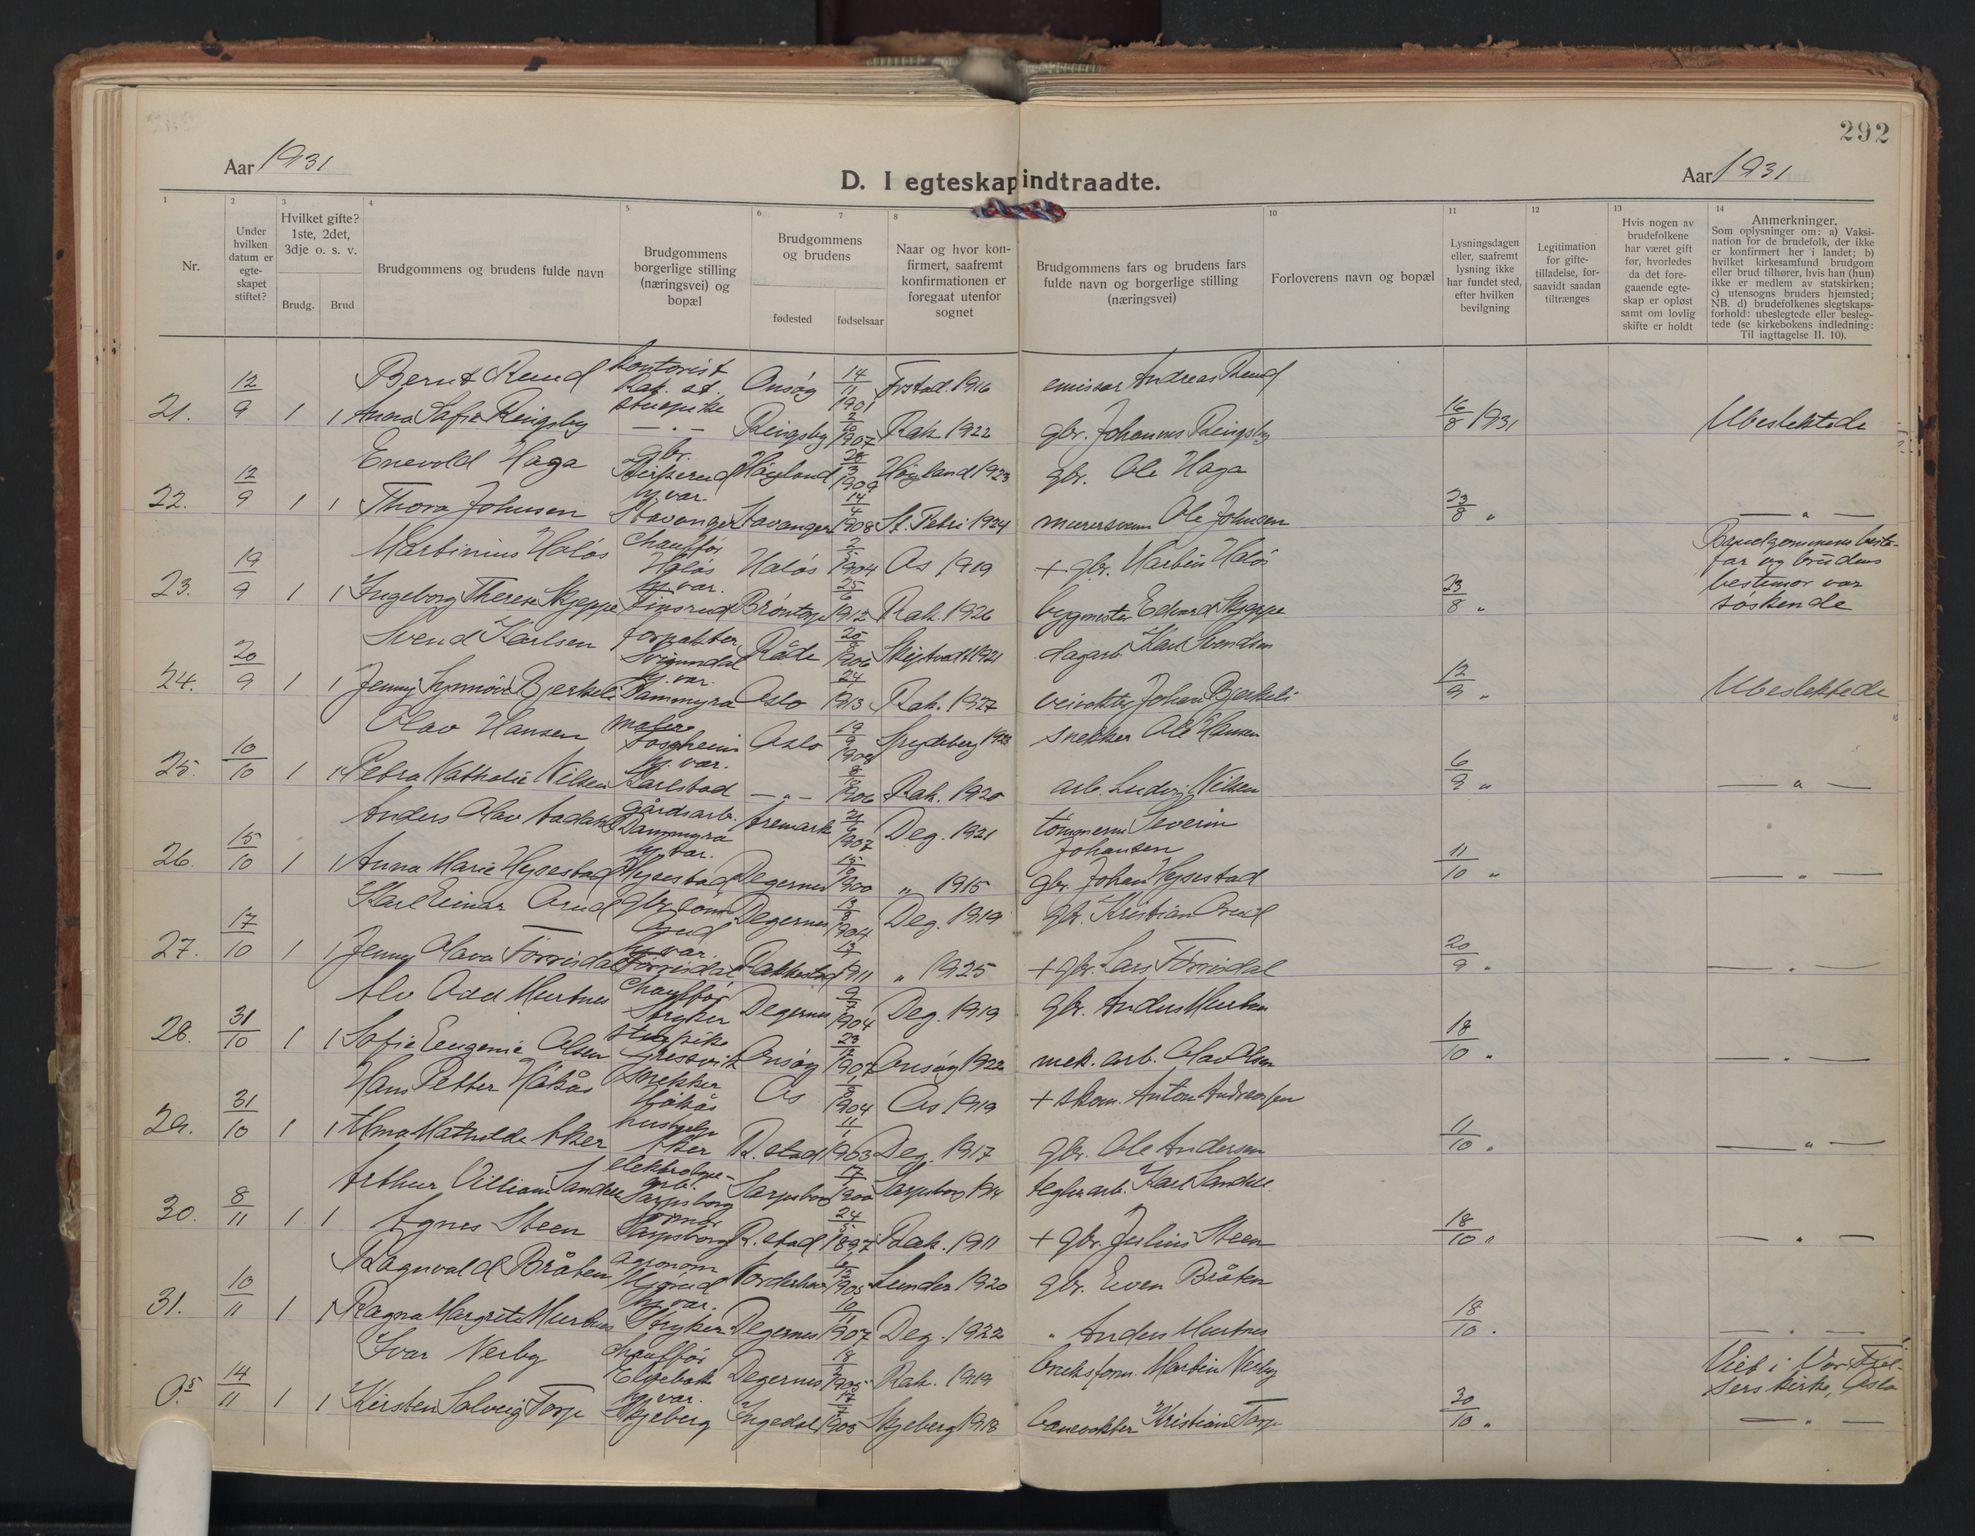 292
Aar 1931
D. I egteskap indtraadte.
Aar 1931
1
2
3
4
5
6
7
8
10
11
12
13
14
Nr.
Under hvilken datum er egte-skapet stiftet?
Hvilket gifte? 1ste, 2det, 3dje o. s. v.
Brudg.
Brud
Brudgommens og brudens fulde navn
Brudgommens borgerlige stilling (næringsvei) og bopæl
Brudgommens og brudens
fødested
fødselsaar
Naar og hvor kon-firmert, saafremt konfirmationen er foregaat utenfor sognet
Brudgommens fars og brudens fars fulde navn og borgerlige stilling (næringsvei)
Forloverens navn og bopæl
Lysningsdagen eller, saafremt lysning ikke har fundet sted, efter hvilken bevilgning
Legitimation for gifte-tilladelse, for-saavidt saadan tiltrænges
Hvis nogen av brudefolkene har været gift før, hvorledes da det fore-gaaende egte-skap er opløst samt om lovlig skifte er holdt
Anmerkninger.
Som oplysninger om: a) Vaksi-nation for de brudefolk, der ikke er konfirmert her i landet; b) hvilket kirkesamfund brudgom eller brud tilhører, hvis han (hun) ikke er medlem av statskirken; c) utensogns bruders hjemsted; NB. d) brudefolkenes slegtskaps-forhold: ubeslegtede eller besleg-tede (se kirkebokens indledning: Til iagttagelse II. 10).
Bernt Ruud kontorist Rak. st. Onsøy 14/11 1901 Frstad 1916 emissær Andreas Ruud
21. 12/9 1 1 Anna Sofie Ringsby stuepike — „ — Ringsby 1907 Rak. 1922 gbr. Johannes Ringsby 16/8 1931 Ubeslektede
Enevold Haga gbr. Høyland 1909 Høyland 1923 gbr. Ole Haga
22. 12/9 1 1 Thora Johnsen hj.var. Stavanger Stavanger 14/4 1908 St. Petri 1924 murersvenn Ole Johnsen 23/8 „ — „ —
Martinius Haløs chauffør Haløs Haløs 2/5 1904 Os 1919 + gbr. Martin Haløs Brudgommens beste-
far og brudens
23. 19/9 1 1 Ingeborg Therese Skjeppe hj.var. Finsrud Brøntorp 25/6 1912 Rak. 1926 byggmester Edvard Skjeppe 23/8 „ bestemor var
søskende
Svend Karlsen forpakter Råde 1906 Skjptvedt 1921 dagarb. Karl Svendsen
24. 20/9 1 1 Jenny Synnøve Bjerkeli hj.var. Dammyra Oslo 1913 Rak. 1927 veivokter Johan Bjerkeli 12/9 „ Ubeslektede
Olav Hansen maler Oslo 19/9 1908 Spydeberg 1923 snekker Ole Hansen
25. 10/10 1 1 Petra Nathalie Nilsen hj.var. Karlstad — „ — 1906 Rak. 1920 arb. Ludvig Nilsen 6/9 „ — „ —
Anders Olav gårdsarb. Dammyra Aremark 1907 Deg. 1921 tømmerm Severin
Johansen
26. 15/10 1 1 Anna Marie Hysestad hj.var. Hysestad Degernes 1900 „ 1915 gbr. Johan Hysestad 11/10 „ — „ —
Karl Einar Orud gbr.sønn Orud Degernes 13/8 1904 Deg. 1919 gbr. Kristian Orud
27. 17/10 1 1 Jenny Olava Torrisdal hj.var. Torrisdal Rakkestad 1911 „ 1925 + gbr. Lars Torrisdal 20/9 „ — „ —
Alv Odd Murtnes chauffør Stryker Degernes 1904 Deg. 1919 gbr. Anders Murtnes
28. 31/10 1 1 Sofie Eugenie Olsen stuepike Gressvik Onsøy 1907 Onsøy 1922 mek. arb. Olav Olsen 18/10 „ — „ —
Hans Petter Håkås snekker Håkås Os 1904 Os 1919 + skom. Anton Andreassen
29. 31/10 1 1 Alma Mathilde Aker hushjelp Aker R.stad 1903 Deg. 1917 gbr. Ole Andersen 11/10 „ — „ —
Arthur William arb. Sarpsborg Sarpsborg 1900 Sarpsborg 1914 teglverarb. Karl
30. 8/11 1 1 Agnes Steen Sarpsborg R.stad 24/5 1897 Rak. 1911 + gbr. Julius Steen 18/10 „ — „ —
Ragnvald Bråten agronom Mjørud Norderhov 1905 Lunder 1920 gbr. Even Bråten
31. 10/11 1 1 Ragna Margrete Murtnes hj.var. Stryker Degernes 10/11 1907 Deg. 1922 „ Anders Murtnes 18/10 „ — „ —
Ivar Nerby chauffør Degernes 1905 Rak. 1919 bruksform. Martin Nerby Viet i Vår Frel-
sers kirke, Oslo
0.5 14/11 1 1 Kirsten Solveig Torp hj.var. Skjeberg Ingedal 1905 Skjeberg 1918 banevokter Kristian Torp 30/10 „ — „ —